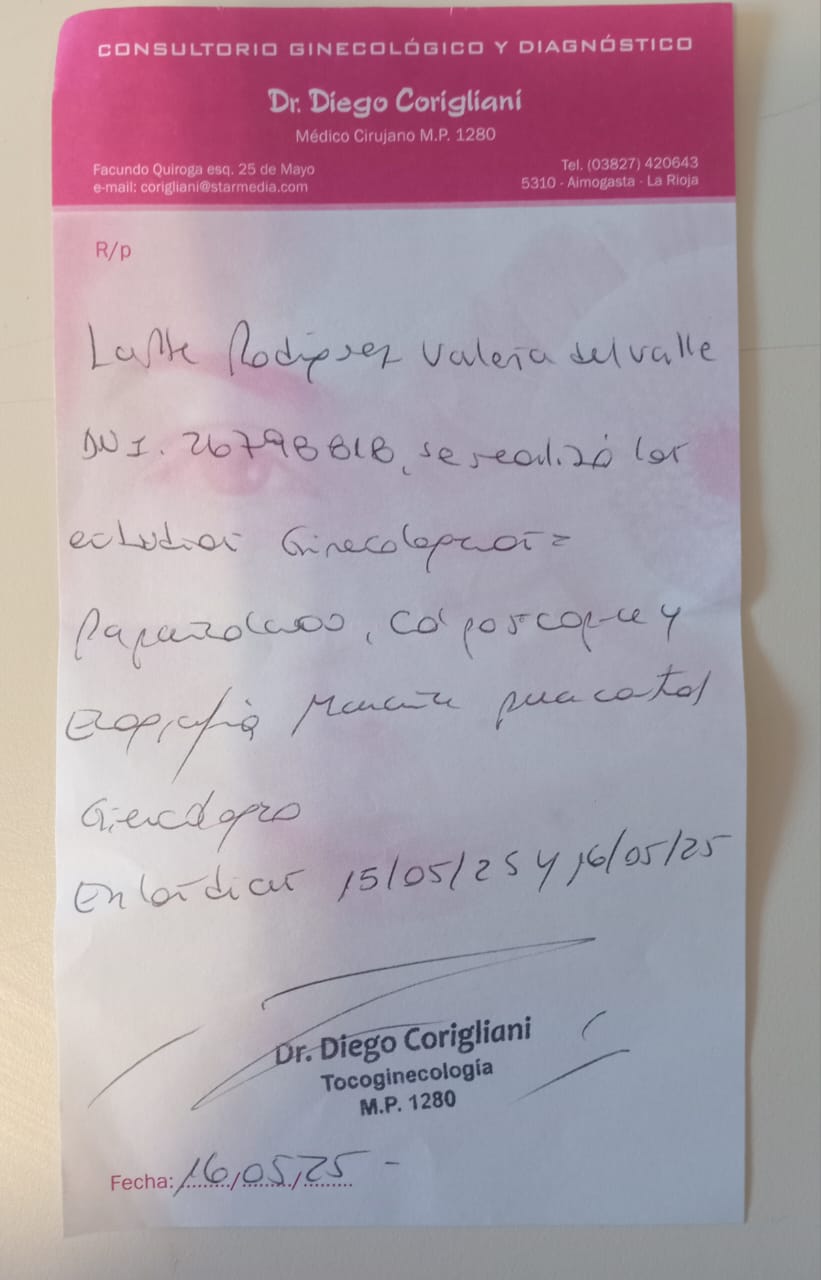 CONSULTORIO GINECOLÓGICO Y DIAGNÓSTICO
Dr. Diego Corigliani
Médico Cirujano M.P. 1280
Facundo Quiroga esq. 25 de Mayo
Tel. (03827) 420643
e-mail: corigliani@starmedia.com
5310 - Aimogasta - La Rioja
R/p
Rodriguez Valeria del valle
DNI. 26798818, se realizó los
estudios Ginecologicos=
Papanicolaou, Colposcopia y
Ecografia Mamaria para control
Ginecologico
En los dias 15/05/25 y 16/05/25
Dr. Diego Corigliani
Tocoginecología
M.P. 1280
Fecha: 16/05/25 -